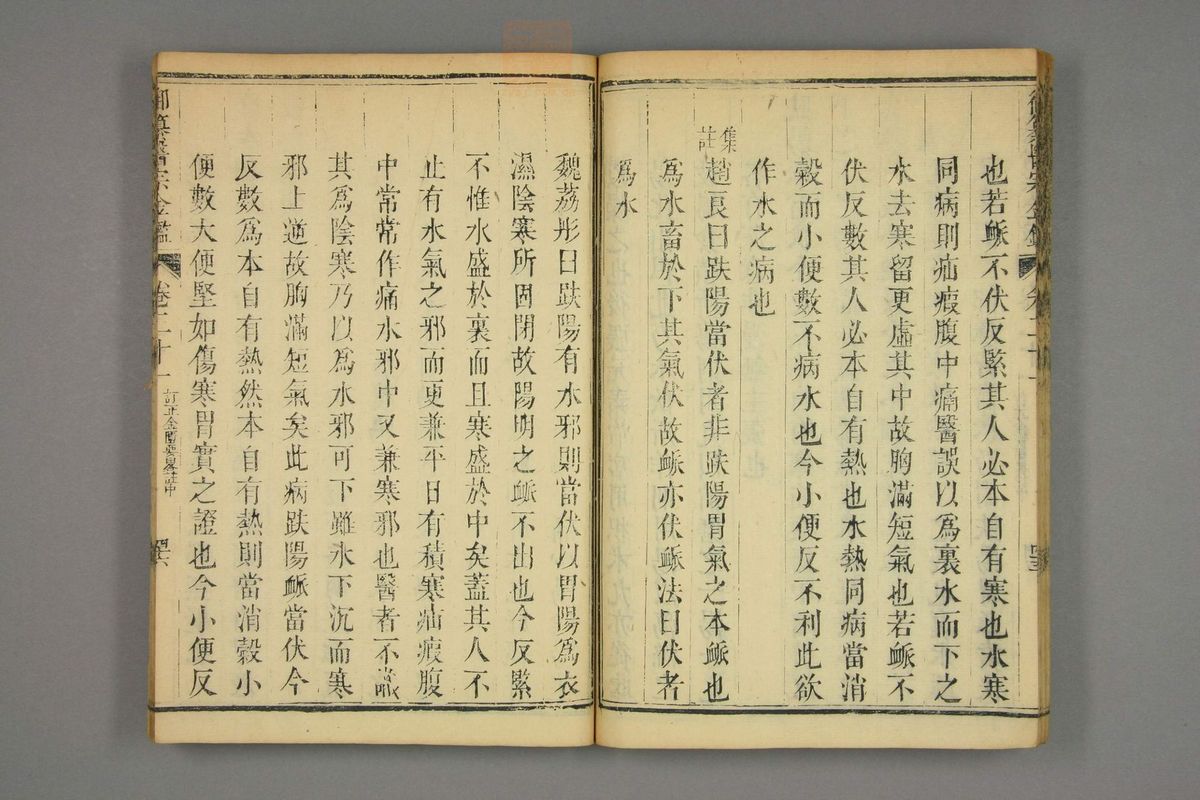 也若䘑不伏反緊其人必本自有寒也水寒
同病則疝瘕腹中痛醫誤以爲裏水而下之
水去寒留更虛其中故胸滿短氣也若䘑不
伏反數其人必本自有熱也水熱同病當消
穀而小便數不病水也今小便反不利此欲
作水之病也
集註
趙良曰趺陽當伏者非趺陽胃氣之本䘑也
爲水畜於下其氣伏故䘑亦伏䘑法曰伏者
爲水
魏荔彤曰趺陽有水邪則當伏以胃陽爲衣
濕陰寒所固閉故陽明之䘑不出也今反緊
不惟水盛於裏而且寒盛於中矣蓋其人不
止有水氣之邪而更兼平日有積寒疝瘕腹
中常常作痛水邪中又兼寒邪也醫者不識
其爲陰寒乃以爲水邪可下雖水下沉而寒
邪上逆故胸滿短氣矣此病趺陽䘑當伏今
反數爲本自有熱然本自有熱則當消穀小
便數大便堅如傷寒胃實之證也今小便反
御纂醫宗金鑑
卷二十一
訂正金匱要略註中